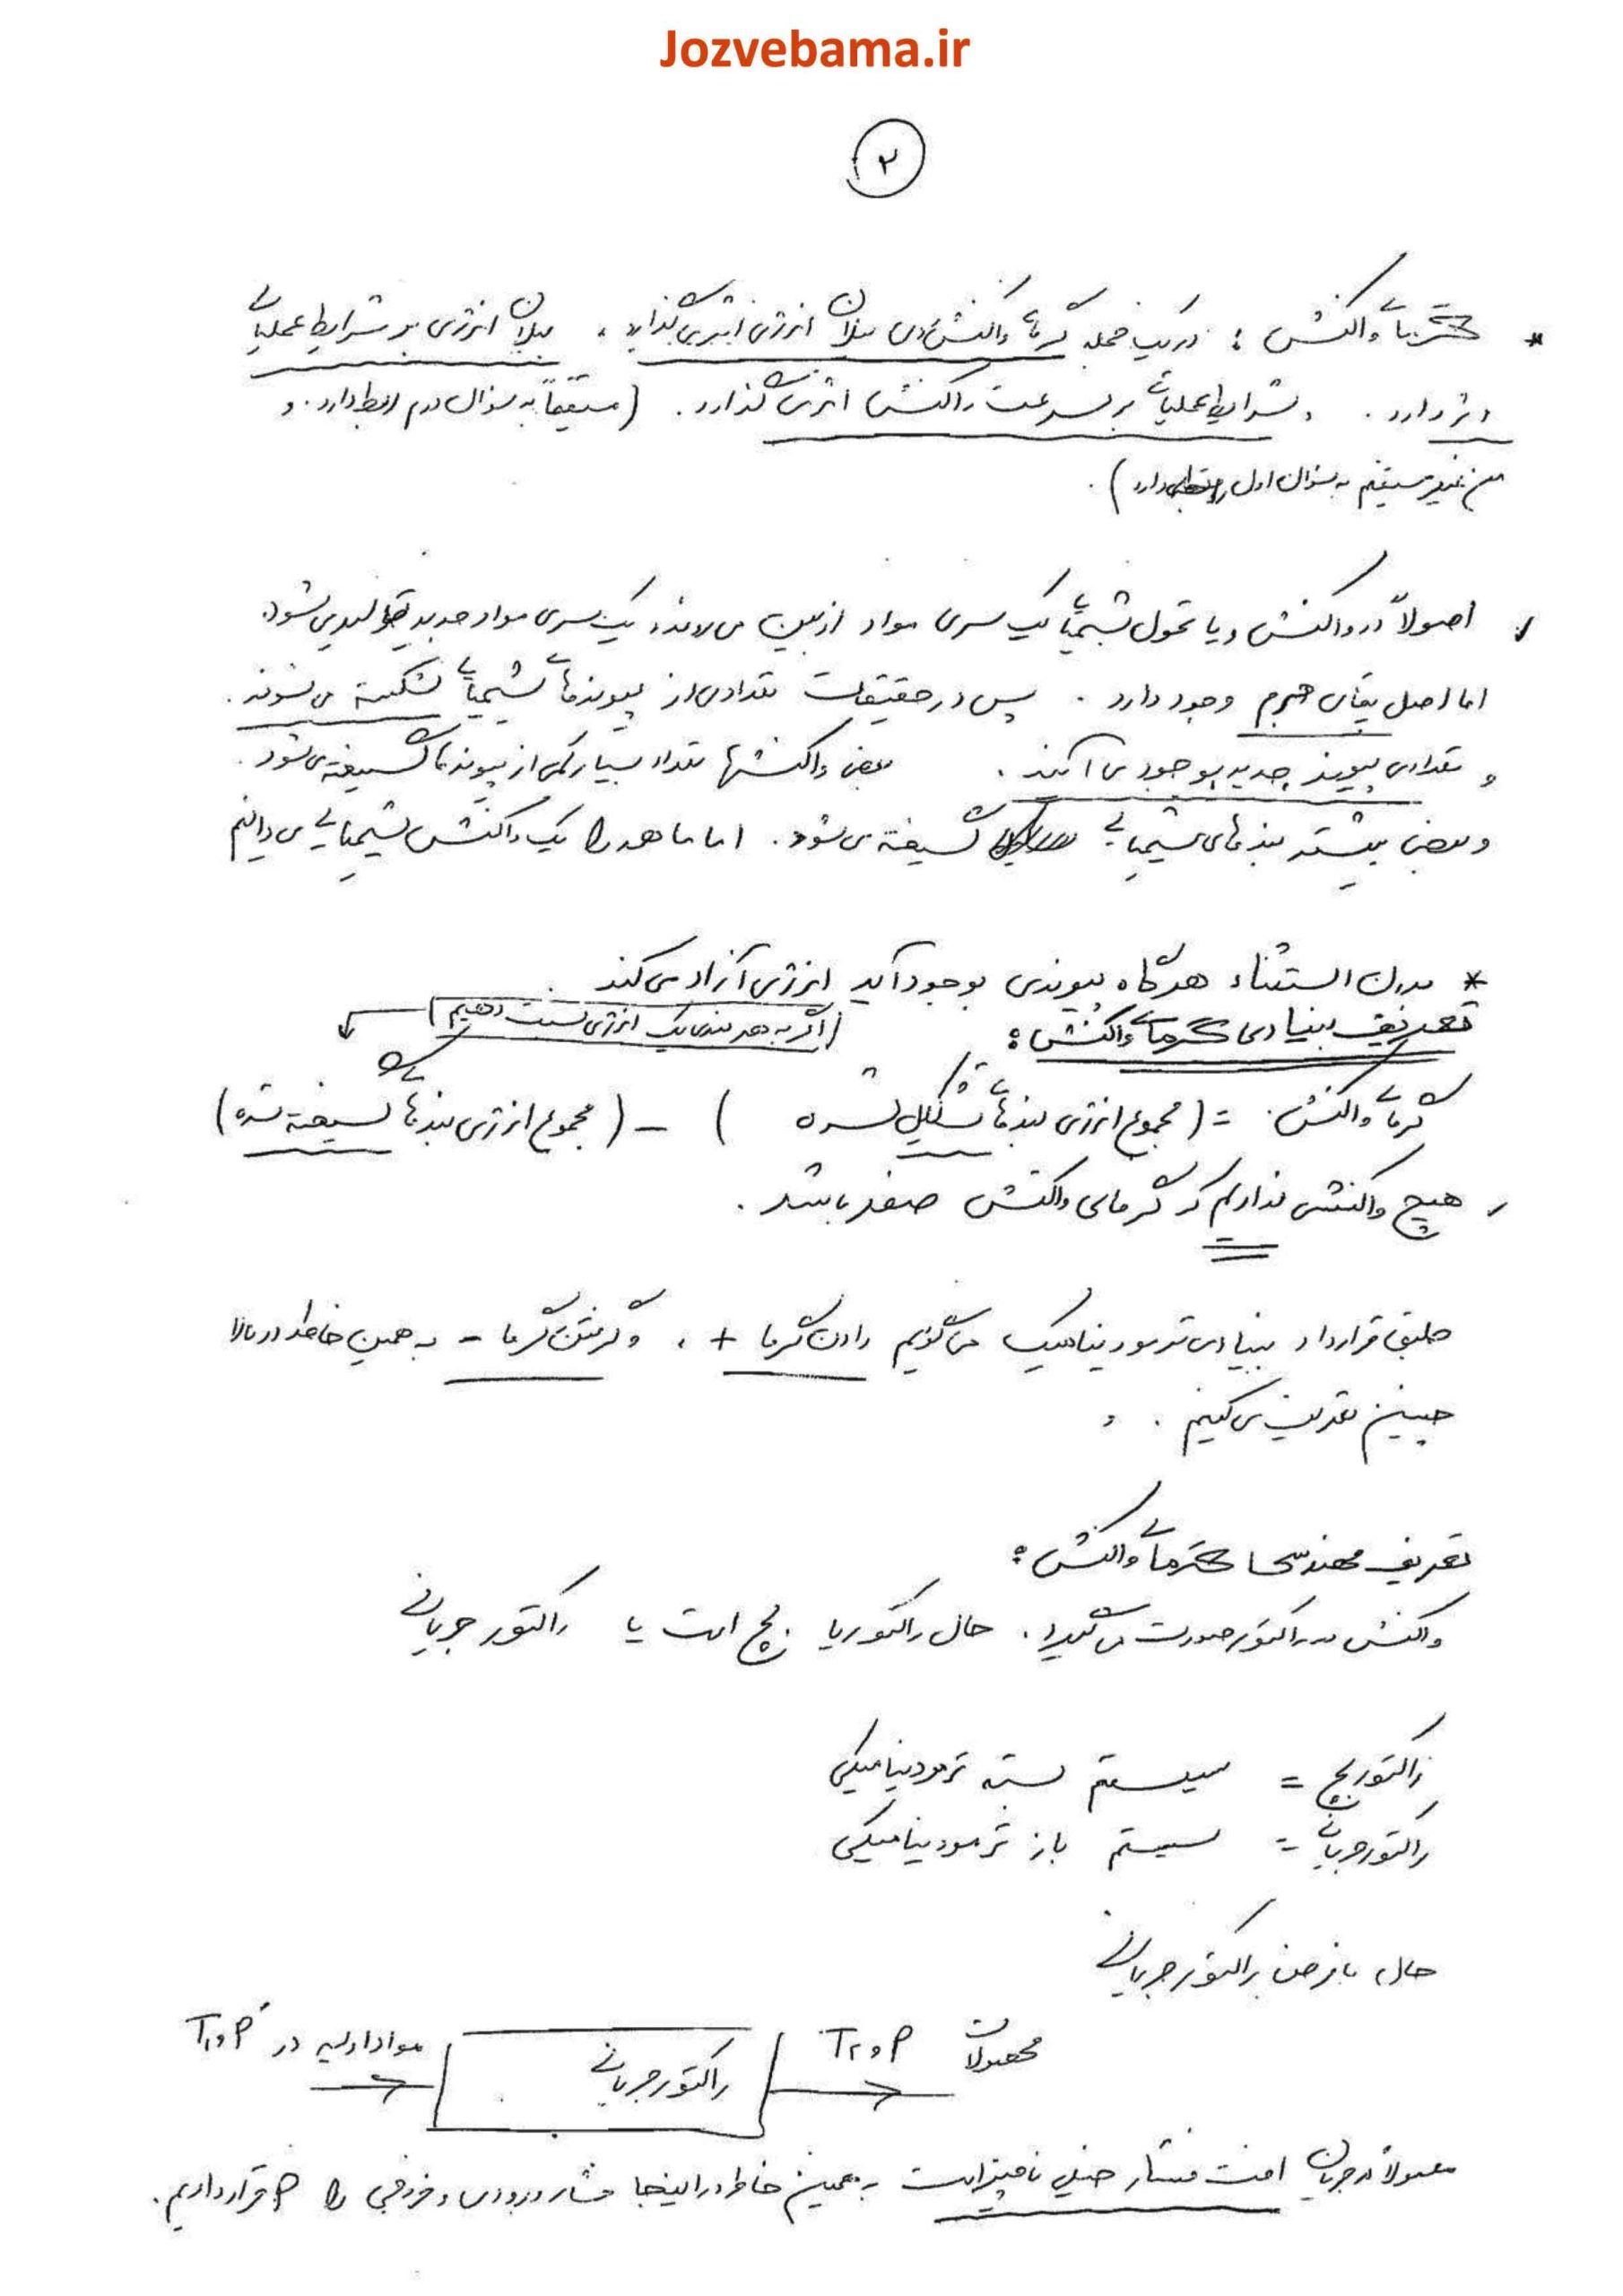 Jozvebama.ir
۲
* گرمای واکنش : در یک جمله گرمای واکنش روی میلان انرژی اثر می‌گذارد ، میلان انرژی بر شرایط عملیاتی
اثر دارد . و شرایط عملیاتی بر سرعت واکنش اثر می‌گذارد . (مستقیماً به سوال دوم ربط دارد . و
من غیر مستقیم به سوال اول ربط دارد) .
اصولاً در واکنش و یا تحول شیمیایی یک سری مواد از بین می‌روند و یک سری مواد جدید تولید می‌شود .
اما اصل بقای جرم وجود دارد . پس در حقیقت تعدادی از پیوندهای شیمیایی شکسته می‌شوند .
و تعدادی پیوند جدید بوجود می‌آیند . بعضی واکنشها تعداد بسیار کمی از پیوندها گسیخته می‌شود .
و بعضی بیشتر بندهای شیمیایی گسیخته می‌شود . اما ما همه را یک واکنش شیمیایی می‌دانیم
* بدون استثناء هرگاه پیوندی بوجود آید انرژی آزاد می‌کند .
تعریف بنیادی گرمای واکنش : (اگر به هر بندی یک انرژی نسبت دهیم)
گرمای واکنش = (مجموع انرژی بندهای تشکیل شده) − (مجموع انرژی بندهای گسیخته شده)
هیچ واکنشی نداریم که گرمای واکنش صفر باشد .
طبق قرارداد بنیادی ترمودینامیک می‌گوئیم دادن گرما + ، و گرفتن گرما − به همین خاطر در بالا
چنین تعریف می‌کنیم .
تعریف مهندسی گرمای واکنش :
واکنش در راکتور صورت می‌گیرد . حال راکتور یا بچ است یا راکتور جریانی
راکتور بچ = سیستم بسته ترمودینامیکی
راکتور جریانی = سیستم باز ترمودینامیکی
حال با فرض راکتور جریانی
مواد اولیه در T₁ و P راکتور جریانی T₂ و P محصولات
معمولاً در جریان افت فشار خیلی ناچیز است به همین خاطر در اینجا فشار ورودی و خروجی را P قرار داریم .